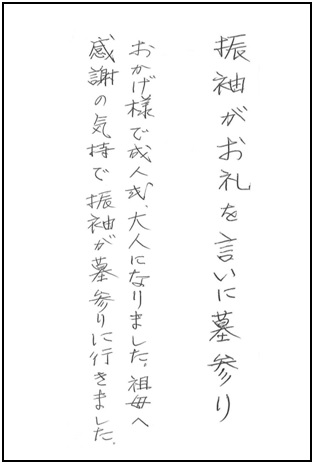 振袖がお礼を言いに墓参り
おかげ様で成人式、大人になりました。祖母へ
感謝の気持で振袖が墓参りに行きました。